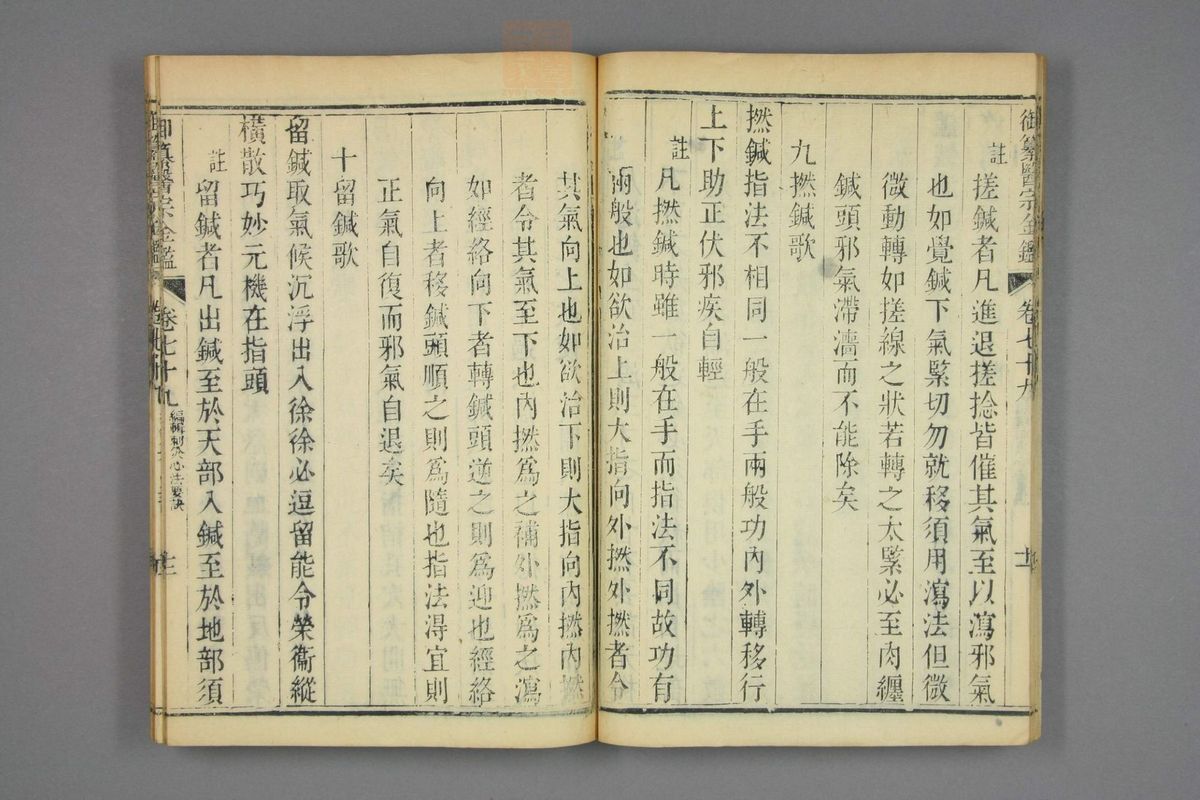 御纂醫宗金鑑 卷七十九
註 搓鍼者凡進退搓捻皆催其氣至以瀉邪氣
也如覺鍼下氣緊切勿就移須用瀉法但微
微動轉如搓線之狀若轉之太緊必至肉纏
鍼頭邪氣滯濇而不能除矣
九撚鍼歌
撚鍼指法不相同一般在手兩般功內外轉移行
上下助正伏邪疾自輕
註 凡撚鍼時雖一般在手而指法不同故功有
兩般也如欲治上則大指向外撚外撚者令
其氣向上也如欲治下則大指向內撚內撚
者令其氣至下也內撚為之補外撚為之瀉
如經絡向下者轉鍼頭逆之則為迎也經絡
向上者移鍼頭順之則為隨也指法得宜則
正氣自復而邪氣自退矣
十留鍼歌
留鍼取氣候沉浮出入徐徐必逗留能令榮衞縱
橫散巧妙元機在指頭
註 留鍼者凡出鍼至於天部入鍼至於地部須
御纂醫宗金鑑 卷七十九 編輯刺灸心法要訣 十二